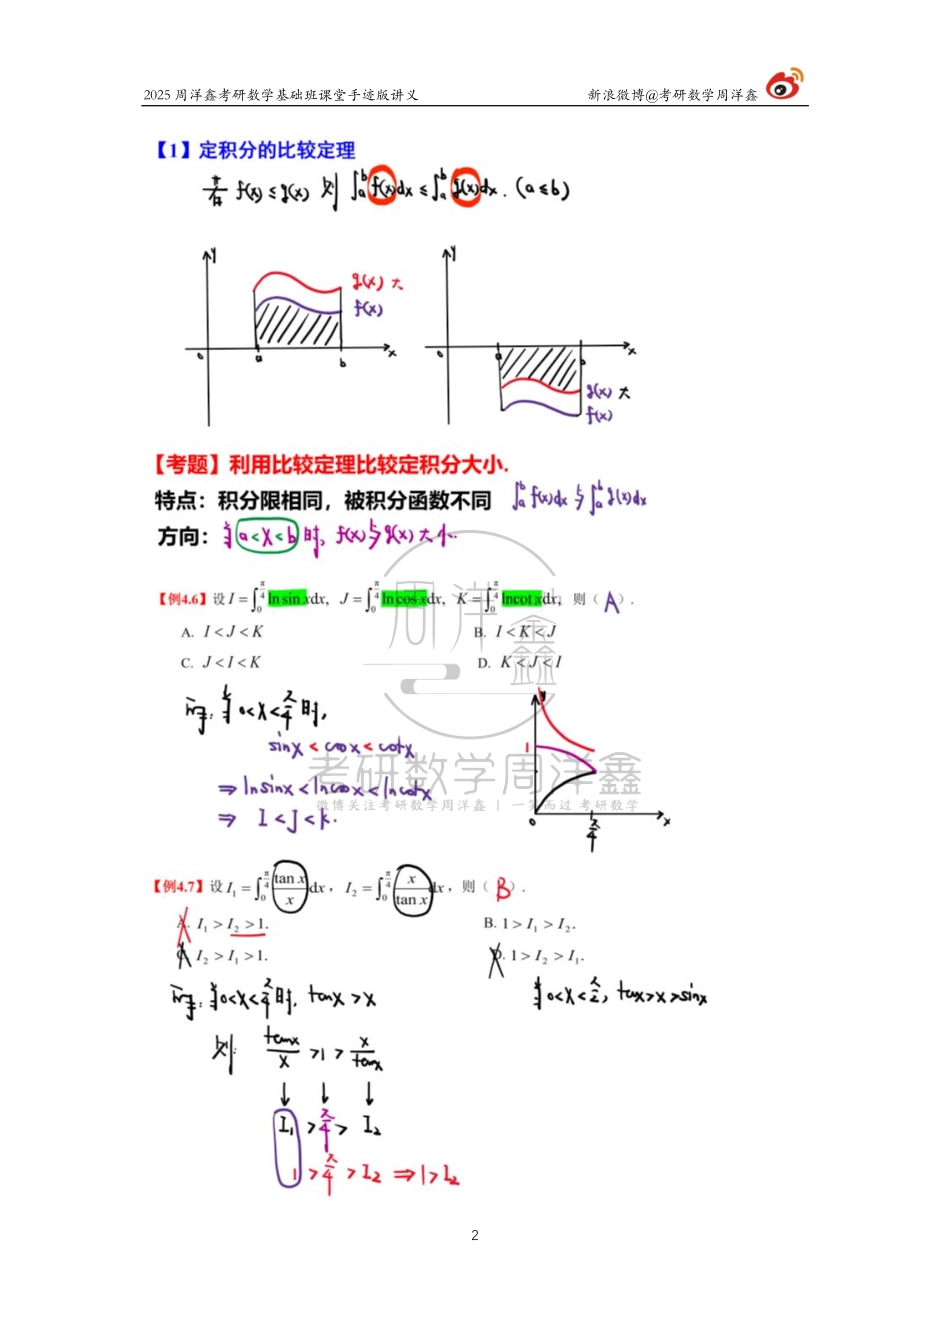 2025 周洋鑫考研数学基础班课堂手迹版讲义 新浪微博@考研数学周洋鑫
【1】定积分的比较定理
若 f(x) ≤ g(x) 则 ∫_a^b f(x)dx ≤ ∫_a^b g(x)dx. (a≤b)
y y
g(x) 大
f(x)
0 a b x 0 a b x
g(x) 大
f(x)
【考题】利用比较定理比较定积分大小.
特点：积分限相同，被积分函数不同 ∫_a^b f(x)dx 与 ∫_a^b g(x)dx
方向：当 a<x<b 时, f(x) 与 g(x) 大小.
【例4.6】设 I = ∫_0^{π/4} ln sin x dx, J = ∫_0^{π/4} ln cos x dx, K = ∫_0^{π/4} ln cot x dx, 则（ A ）.
A. I < J < K B. I < K < J
C. J < I < K D. K < J < I
当 0<x<π/4 时,
sinx < cosx < cotx
⇒ lnsinx < lncosx < lncotx
⇒ I < J < K.
y
1
0 π/4 x
周洋鑫
考研数学周洋鑫
微博关注考研数学周洋鑫 | 一笑而过 考研数学
【例4.7】设 I₁ = ∫_0^{π/4} tan x / x dx, I₂ = ∫_0^{π/4} x / tan x dx, 则（ B ）.
A. I₁ > I₂ > 1. B. 1 > I₁ > I₂.
C. I₂ > I₁ > 1. D. 1 > I₂ > I₁.
当 0<x<π/4 时, tanx > x 当 0<x<π/2, tanx>x>sinx
则: tanx/x > 1 > x/tanx
↓ ↓ ↓
I₁ > π/4 > I₂
1 > π/4 > I₂ ⇒ 1 > I₂
2